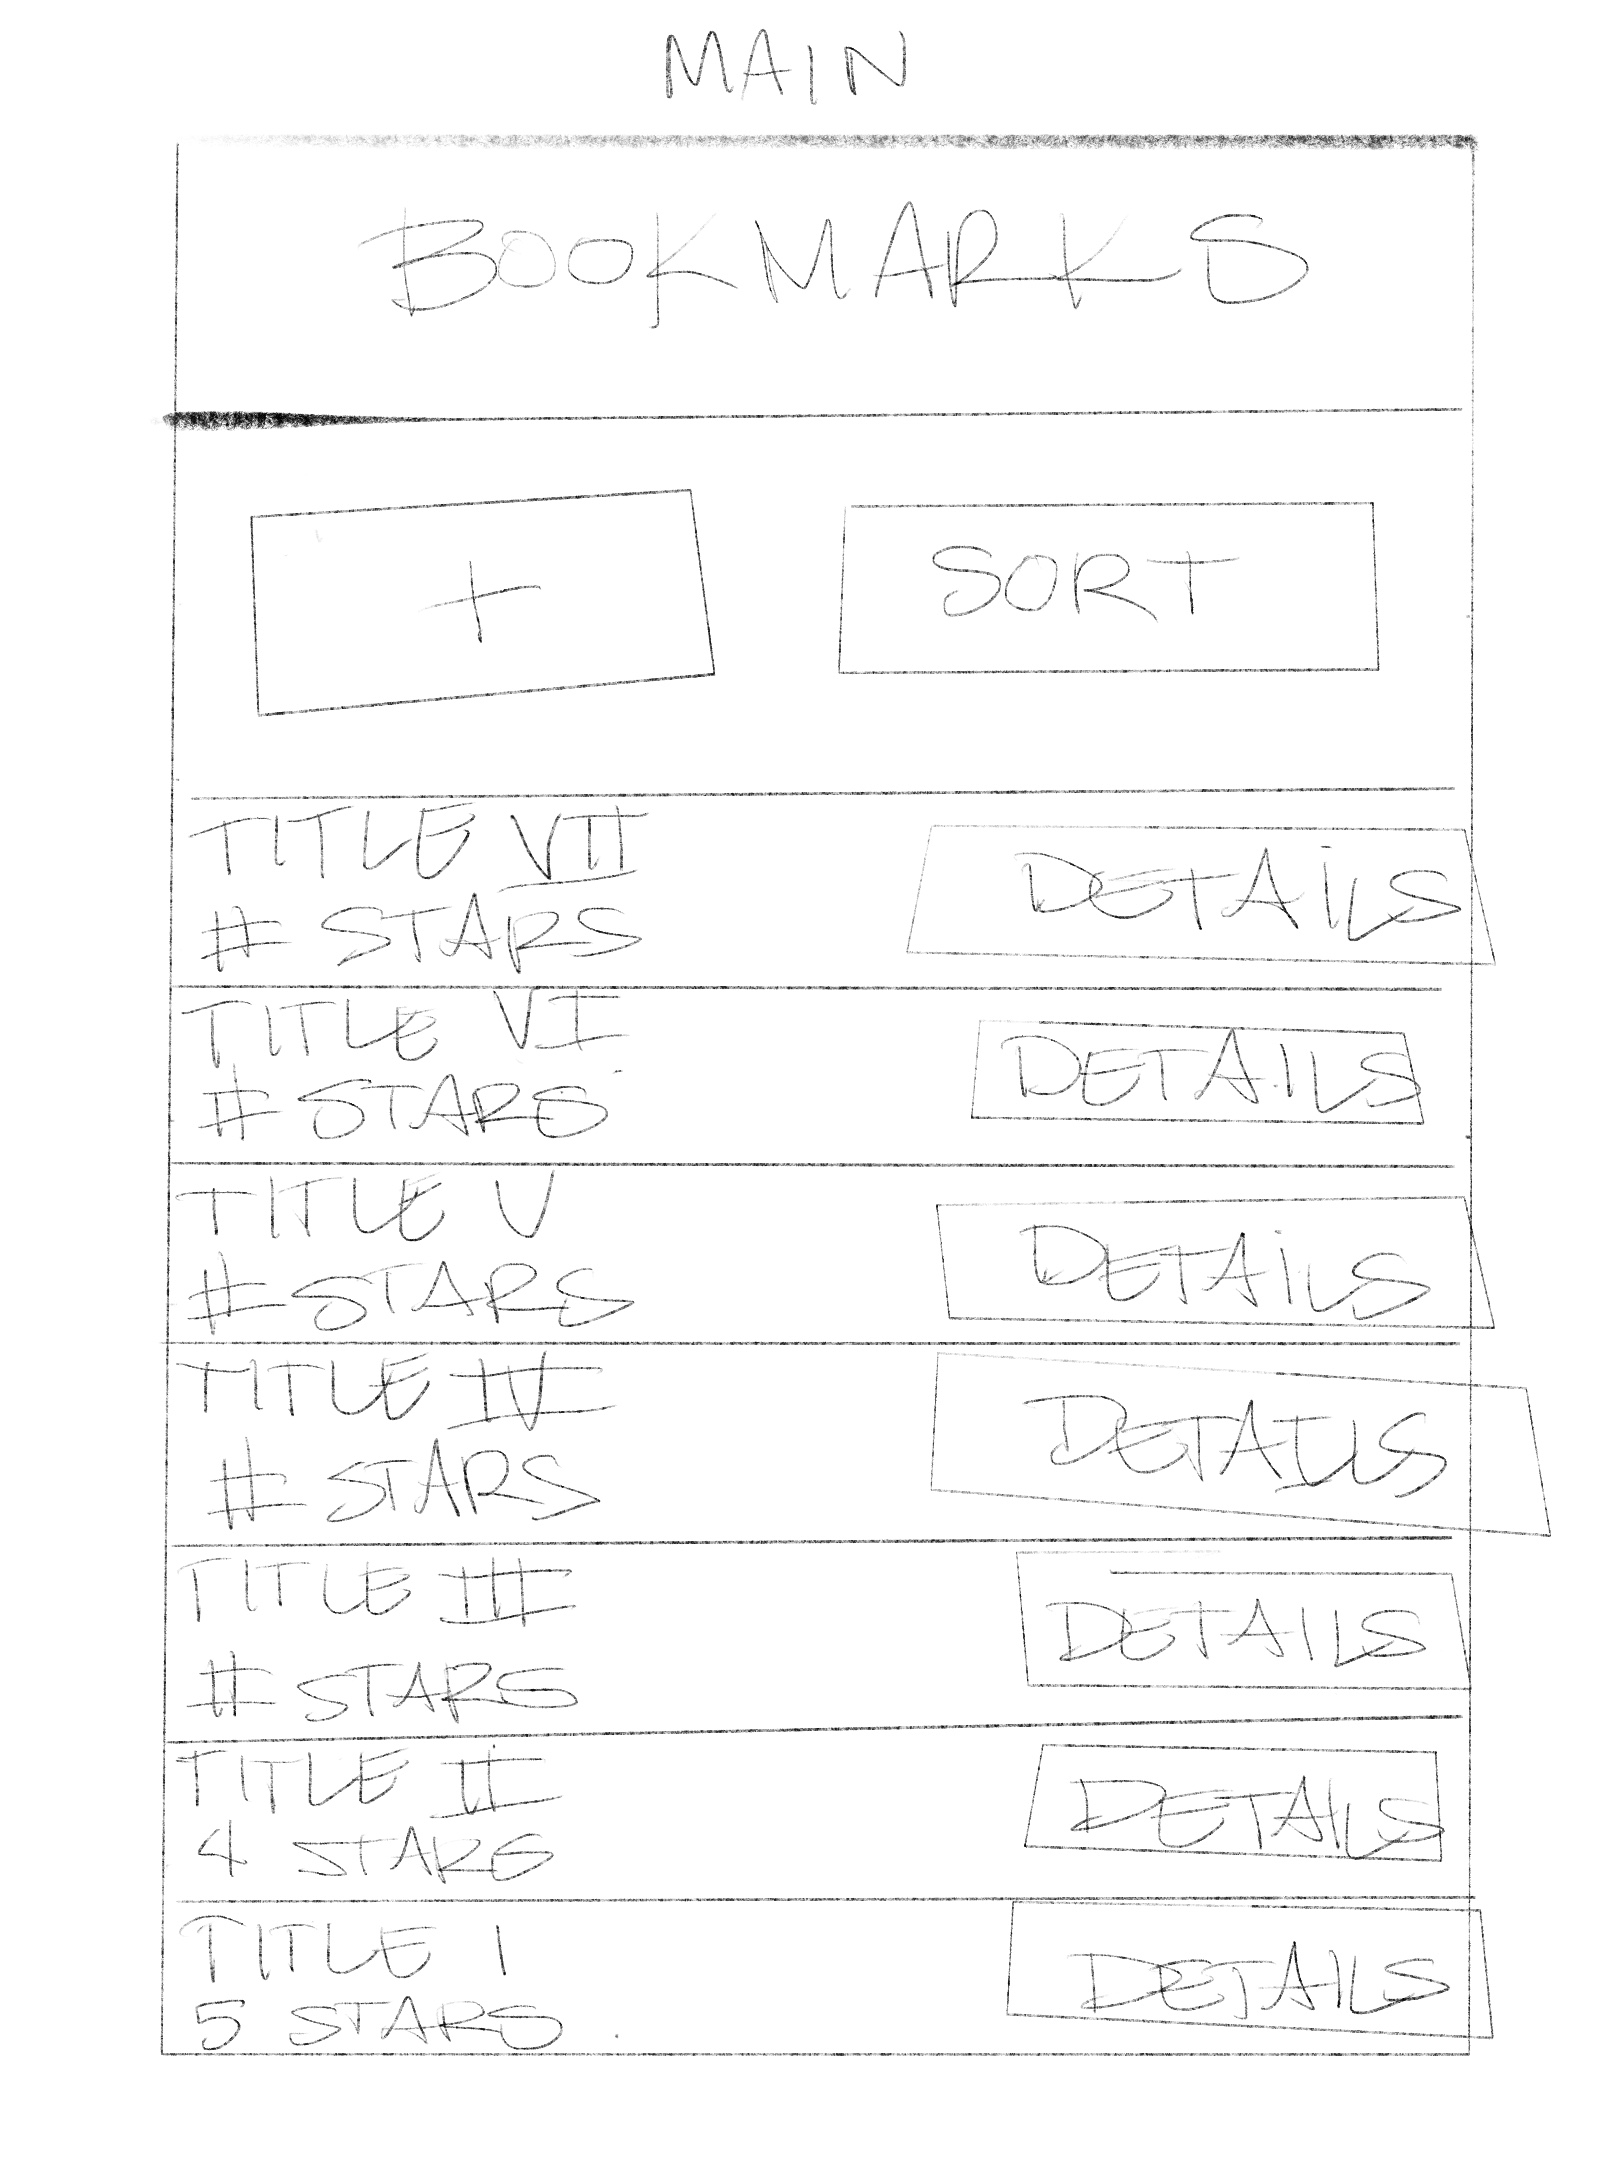 MAIN
BOOKMARKS
+ SORT
TITLE VII
# STARS
DETAILS
TITLE VI
# STARS
DETAILS
TITLE V
# STARS
DETAILS
TITLE IV
# STARS
DETAILS
TITLE III
# STARS
DETAILS
TITLE II
4 STARS
DETAILS
TITLE I
5 STARS
DETAILS